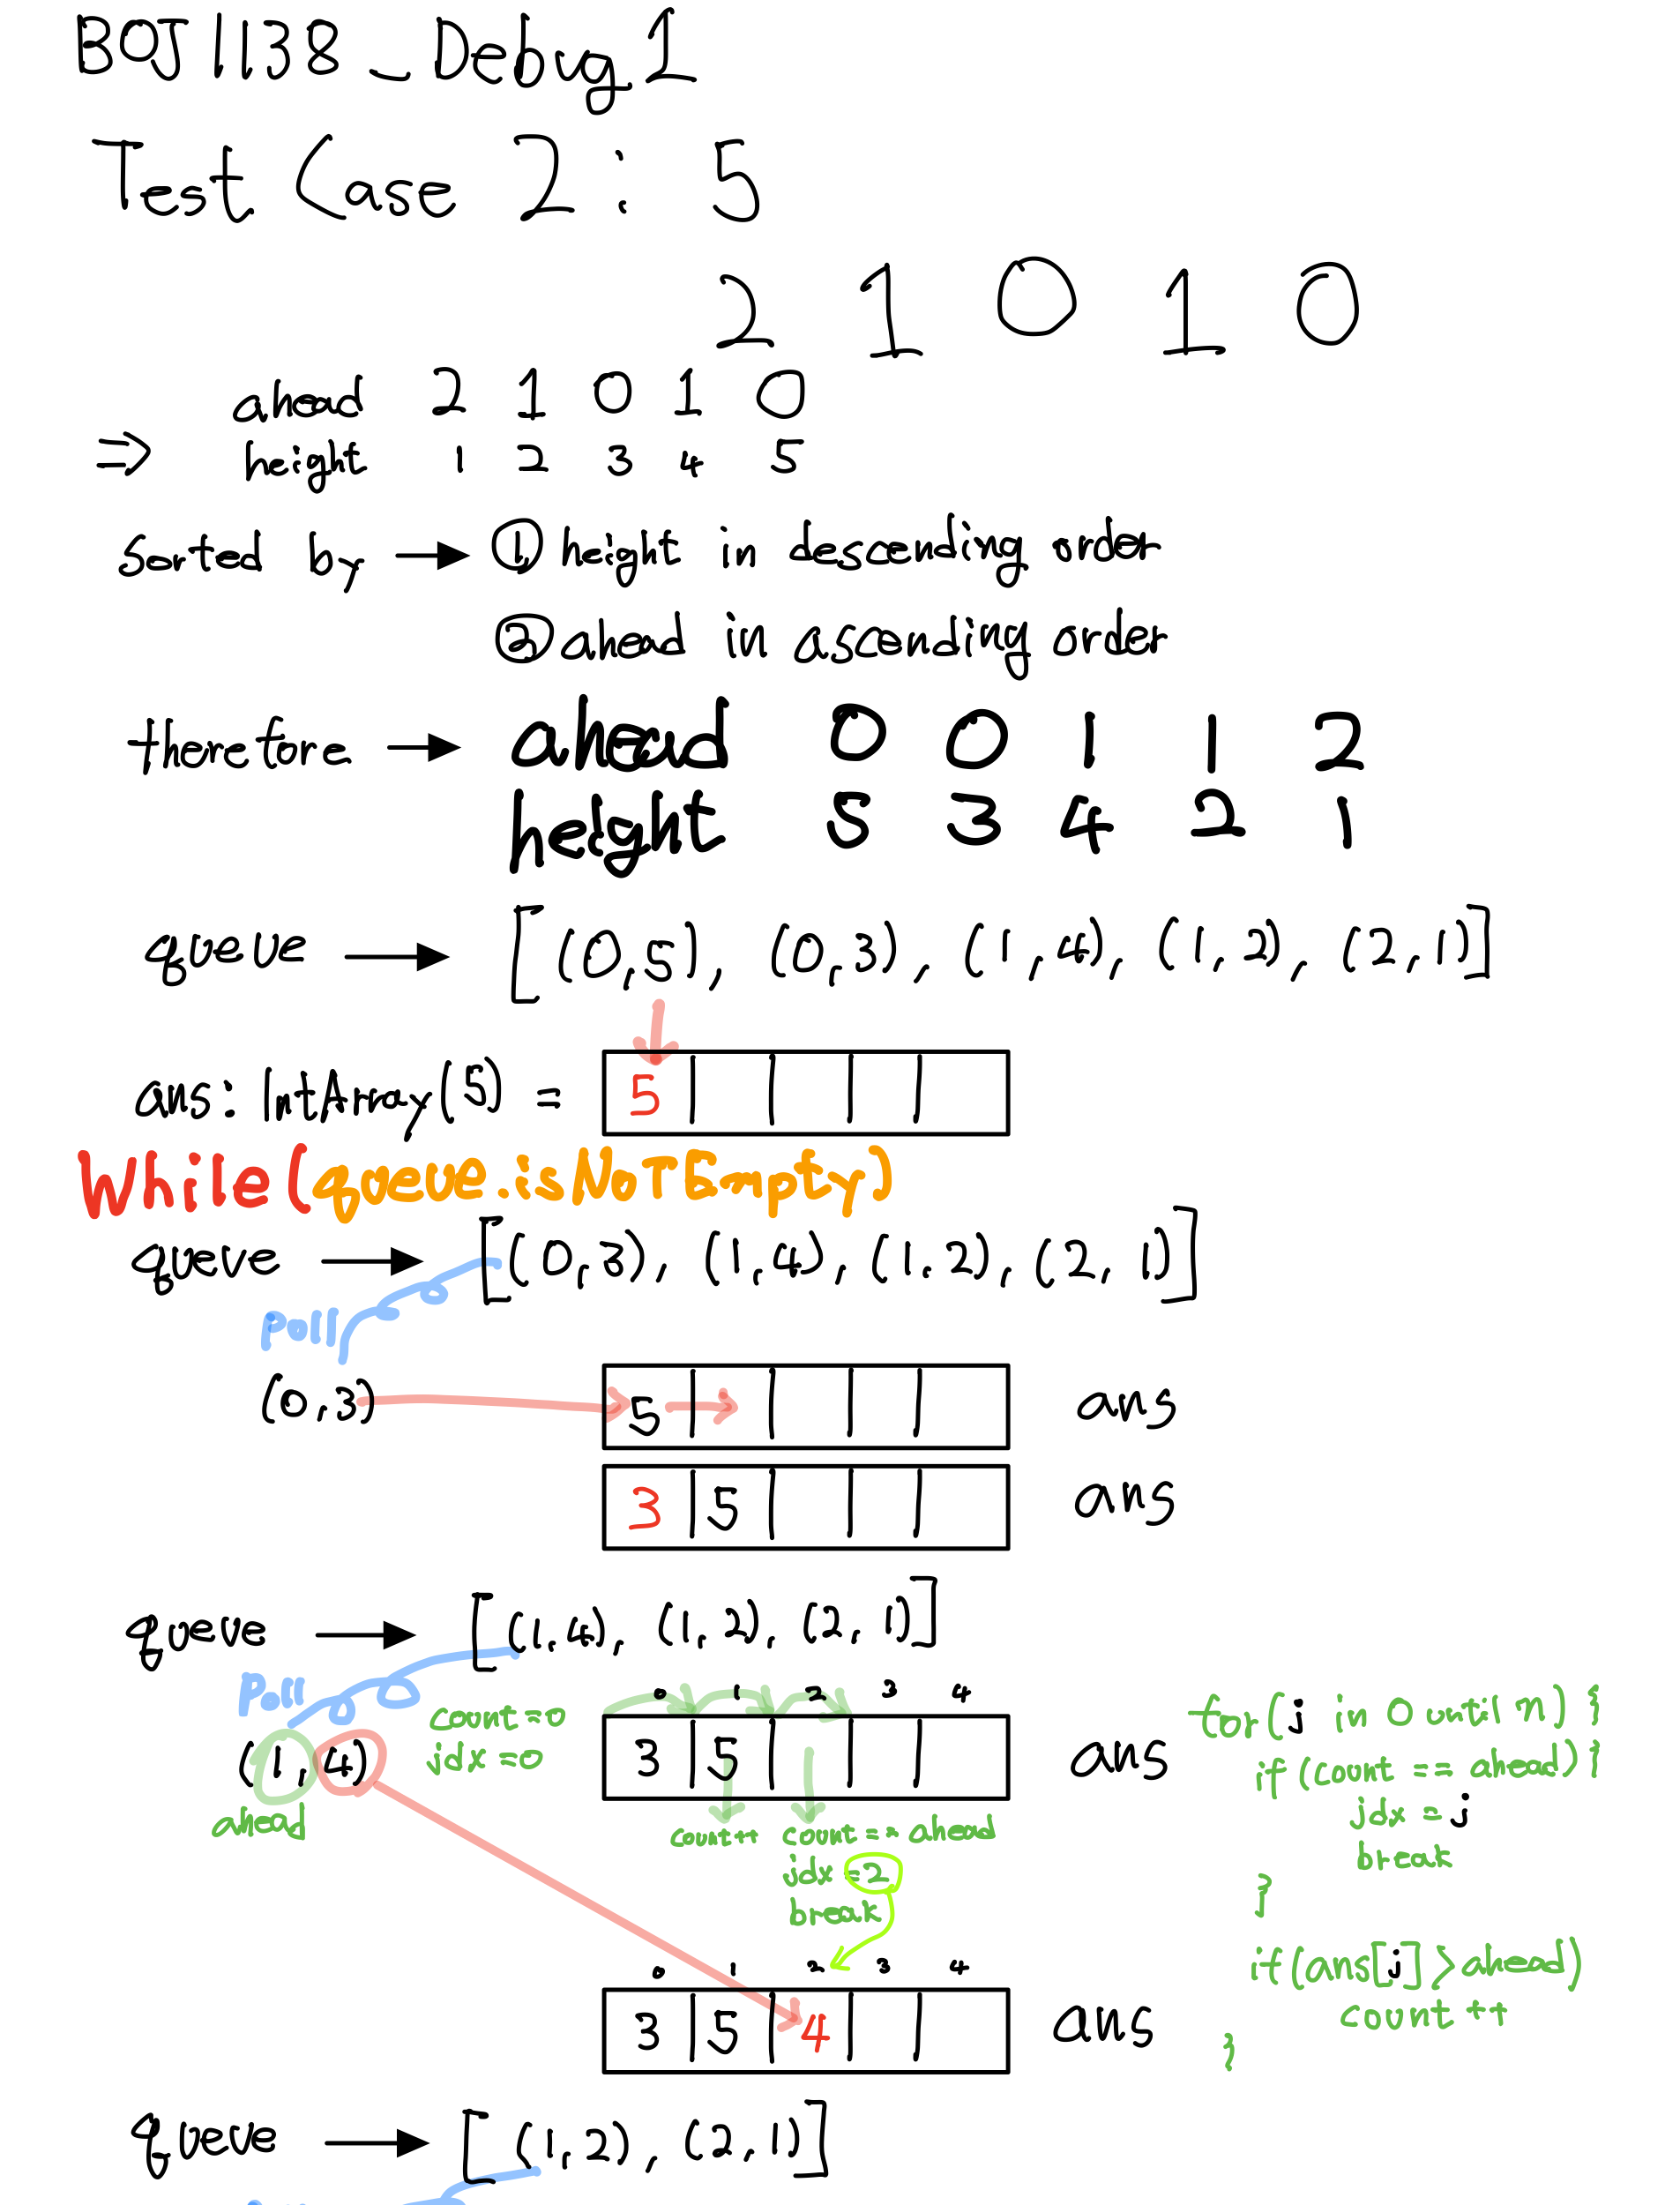 BOJ1138_Debug1
Test Case 2 : 5
2 1 0 1 0
ahead 2 1 0 1 0
⇒ height 1 2 3 4 5
sorted by → ① height in descending order
② ahead in ascending order
therefore → ahead 0 0 1 1 2
height 5 3 4 2 1
queue → [(0,5), (0,3), (1,4), (1,2), (2,1)]
ans: IntArray(5) = 5
While(queue.isNoTEmpty)
queue → [(0,3), (1,4), (1,2), (2,1)]
Poll
(0,3) 5 ans
3 5 ans
queue → [(1,4), (1,2), (2,1)]
Poll
0 1 2 3 4
count=0
idx=0
(1,4) 3 5 ans
ahead
count++ count== ahead
idx=2
break
for(j in 0 until n) {
if(count == ahead) {
idx = j
break
}
if(ans[j]>ahead)
count++
}
0 1 2 3 4
3 5 4 ans
queue → [(1,2), (2,1)]